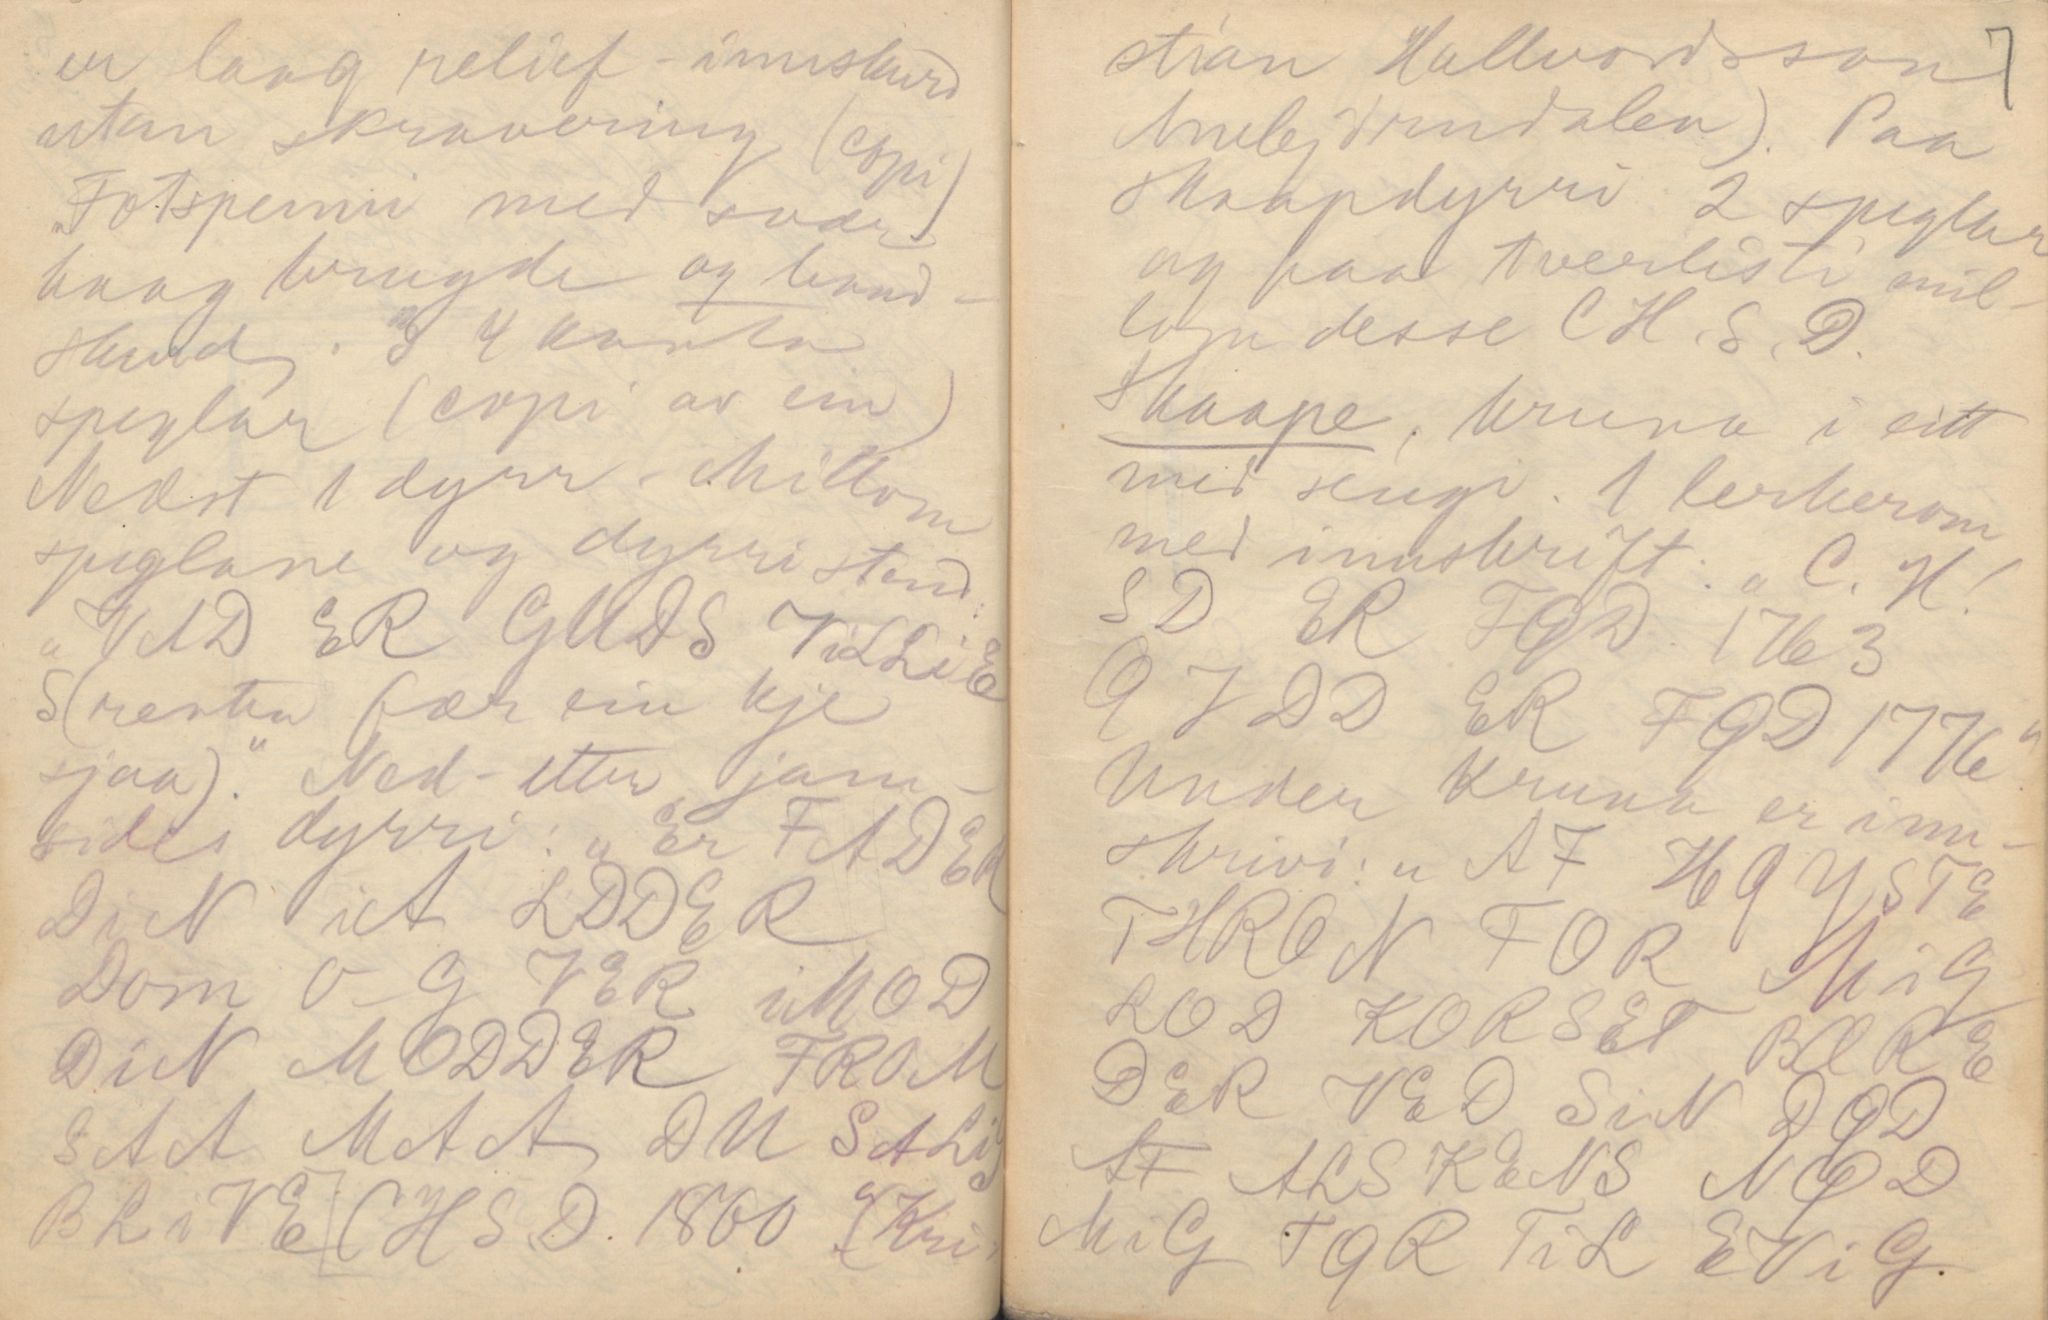 er laag relief - innskurd
utan skravering (copi)
"Fotspenni med svær
haag brugde og band-
skurd. I 4 kanta
speglar (copi av ein)
Nedst 1 dyrr. Millom
speglane og dyrri stend:
"VAD ER GUDS ViLLiE
S (resten fær ein kje
sjaa)." Ned-etter jam-
sides dyrri: "Er FADER
DiN iA LDDER
Dom O-G VER iMOD
DiN MODDER FROM
SAA MAA DU SALig
BLiVE [CHSD. 1800" (Kri-
7
stian Hallvordsson
Paa
skaapdyrri 2 speglar
og paa tverlisti mil-
lom desse C H. S. D.
Skaape, kruna i eitt
med sengi. 1 lerkerom
med innskrift: "C. H!
SD ER FQD. 1763
Q J DD ER FQD 1776"
Under kruna er inn-
skrivi: "AF HQYSTE
THRON FOR MiG
LOD KORSET BÆRE
DER VED SiN DQD
AF ALSKENS NQD
MiG FQR TiL EViG.